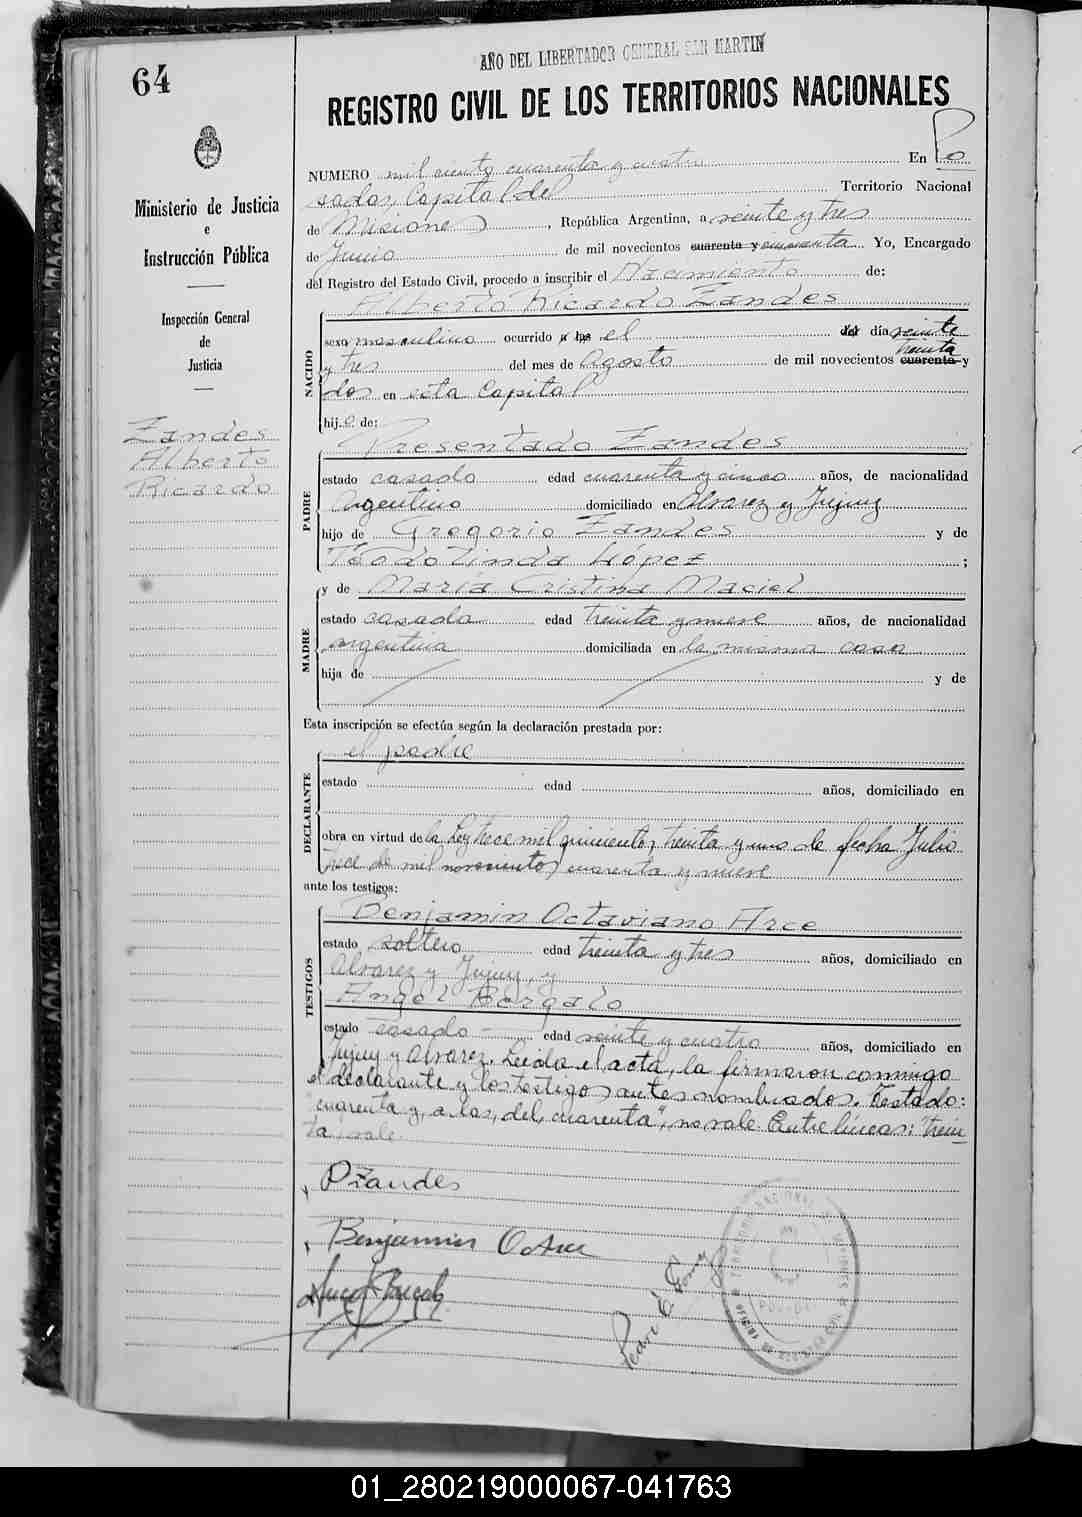 AÑO DEL LIBERTADOR GENERAL SAN MARTIN
64
REGISTRO CIVIL DE LOS TERRITORIOS NACIONALES
Ministerio de Justicia
e
Instrucción Pública
Inspección General
de
Justicia
Zandes
Alberto
Ricardo
NUMERO mil ciento cuarenta y cuatro En Po
sadas, Capital del Territorio Nacional
de Misiones, República Argentina, a veinte y tres
de Junio de mil novecientos cuarenta y cincuenta Yo, Encargado
del Registro del Estado Civil, procedo a inscribir el Nacimiento de:
Alberto Ricardo Zandes
NACIDO
sexo masculino ocurrido a las el del día veinte
y tres del mes de Agosto de mil novecientos cuarenta y treinta
dos en esta Capital
hijo de:
Presentado Zandes
PADRE
estado casado edad cuarenta y cinco años, de nacionalidad
Argentino domiciliado en Alvarez y Jujuy
hijo de Gregorio Zandes y de
Teodolinda López ;
y de María Cristina Maciel
MADRE
estado casada edad treinta y nueve años, de nacionalidad
argentina domiciliada en la misma casa
hija de y de
Esta inscripción se efectúa según la declaración prestada por:
el padre
DECLARANTE
estado edad años, domiciliado en
obra en virtud de la Ley trece mil quinientos treinta y uno de fecha Julio
trece de mil novecientos cuarenta y nueve
ante los testigos:
Benjamin Octaviano Arce
TESTIGOS
estado soltero edad treinta y tres años, domiciliado en
Alvarez y Jujuy, y
Angel Bergalo
estado casado edad veinte y cuatro años, domiciliado en
Jujuy y Alvarez. Leida el acta, la firmaron conmigo
el declarante y los testigos antes nombrados. Testado:
"cuarenta y, a las, del, cuarenta", no vale. Entre lineas: "trein
ta" vale.
PZandes
Benjamin O Arce
01_280219000067-041763